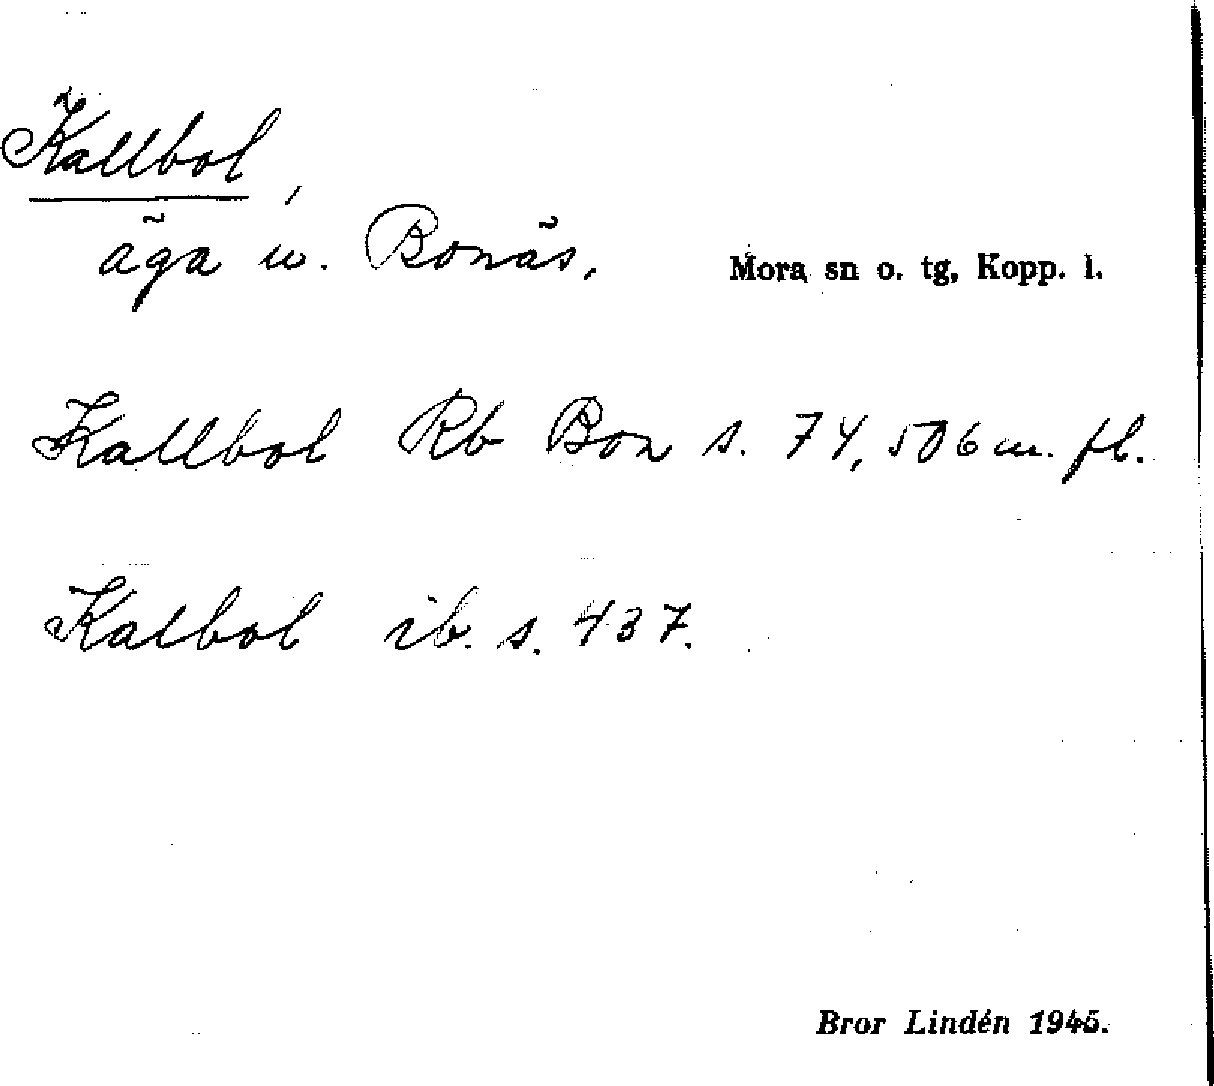 Kallbol,
äga u. Bonäs. Mora sn o. tg, Kopp. l.
Kallbol Rb Bon s. 74, 506 m. fl.
Kalbol ib. s. 437.
Bror Lindén 1945.